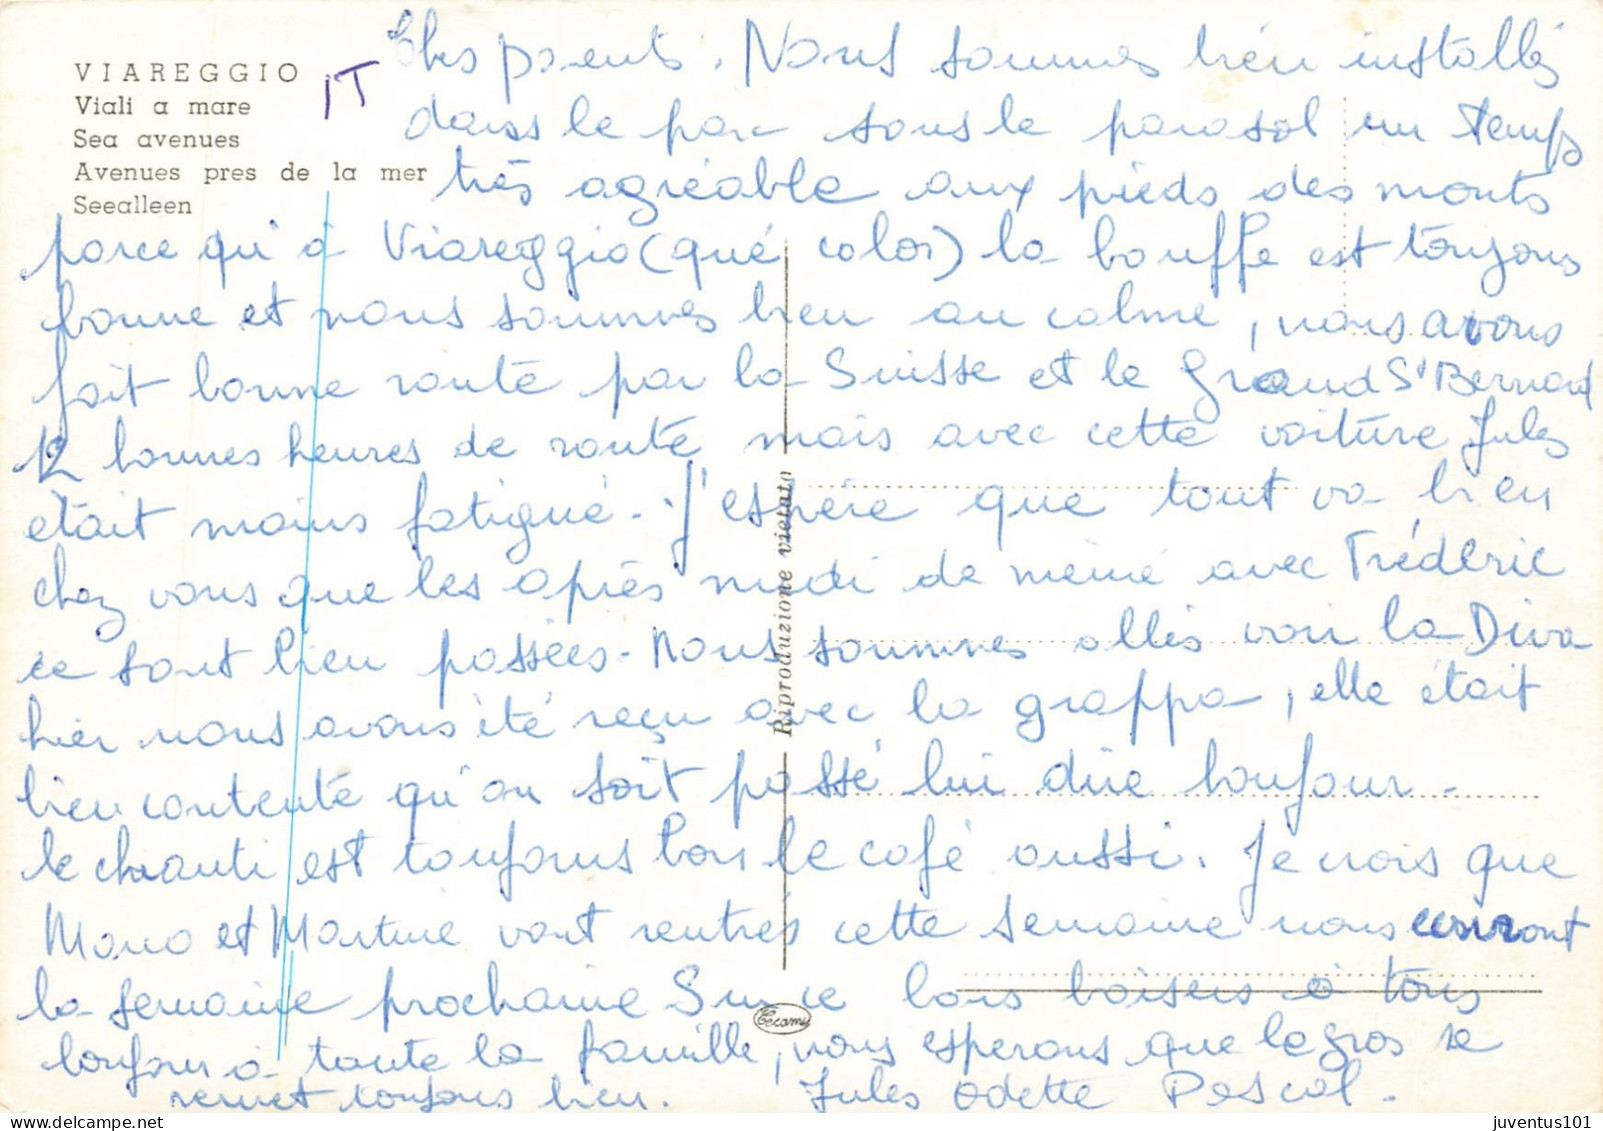 VIAREGGIO
Viali a mare
Sea avenues
Avenues pres de la mer
Seealleen
IT
Chers parents. Nous sommes bien installés
dans le parc sous le parasol un temps
très agréable aux pieds des monts
parce qu'à Viareggio (qué calor) la bouffe est toujours
bonne et nous sommes bien au calme, nous avons
fait bonne route par la Suisse et le Grand St Bernard
12 bonnes heures de route mais avec cette voiture Jules
était moins fatigué. J'espère que tout va bien
chez vous que les après midi de même avec Frédéric
ce sont bien passées. Nous sommes allés voir la Diva
hier nous avons été reçu avec la grappa, elle était
bien contente qu'on soit passé lui dire bonjour.
le chianti est toujours bon le café aussi. Je crois que
Mano et Martine vont rentrés cette semaine nous
la semaine prochaine Sur ce bons baisers à tous
bonjour à toute la famille, nous esperons que le gros se
remet toujours bien. Jules Odette Pascal.
Riproduzione vietata
Cecami
www.delcampe.net
juventus101